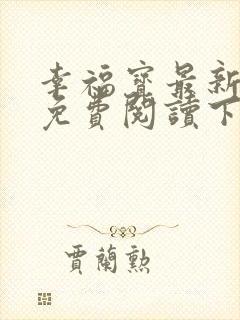 幸福寶最新
免費閱讀下
賈蘭勲